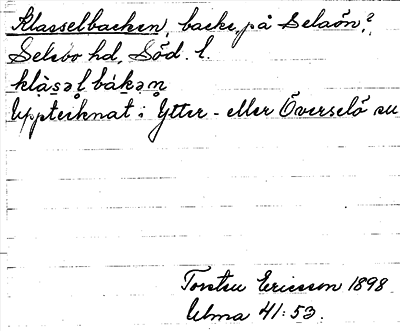 Klasselbacken, backe på Selaön?,
Selebo hd, Söd. l.
klàsəl bákən
Uppteiknat i Ytter- eller Överselö sn
Torsten Ericsson 1898
Ulma 41:53.